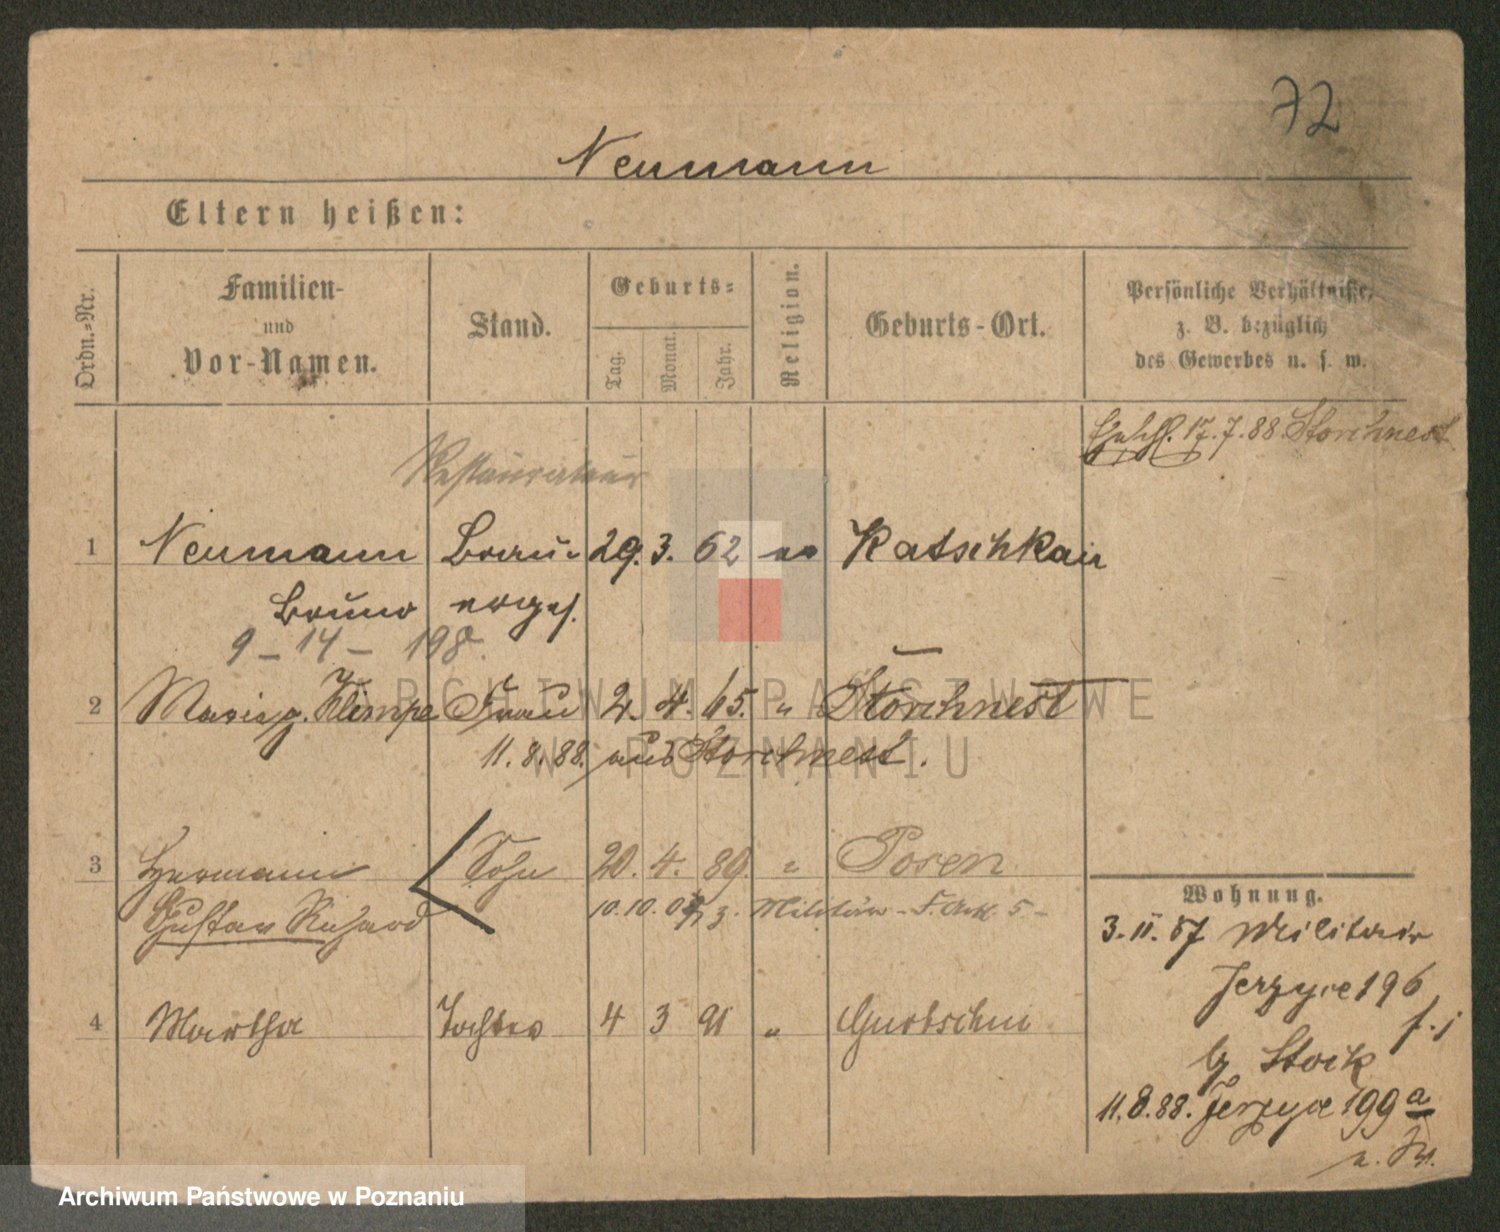 72
Neumann
Eltern heißen:
Ordn.-Nr.
Familien- und Vor-Namen.
Stand.
Geburts-
Tag.
Monat.
Jahr.
Religion.
Geburts-Ort.
Persönliche Verhältnisse, z. B. bezüglich des Gewerbes u. s. w.
17.7.88 Storchnest
Restaurateur
1 Neumann Brau- 29. 3. 62 Katschkau
Bruno
9 - 14 - 198.
2 Marie g. Klimpe Frau 2. 4. 65. " Storchnest
11.8.88. aus Storchnest.
3 Hermann Sohn 20. 4. 89. " Posen
Gustav Richard 10.10. Militär - F. Art. 5 -
4 Martha Tochter 4 3 91 " Gurtschin
Wohnung.
3.11.87 Militair
Jerzyce 196
b/ Stock
11.8.88. Jerzyce 199 a
ARCHIWUM PAŃSTWOWE
W POZNANIU
Archiwum Państwowe w Poznaniu